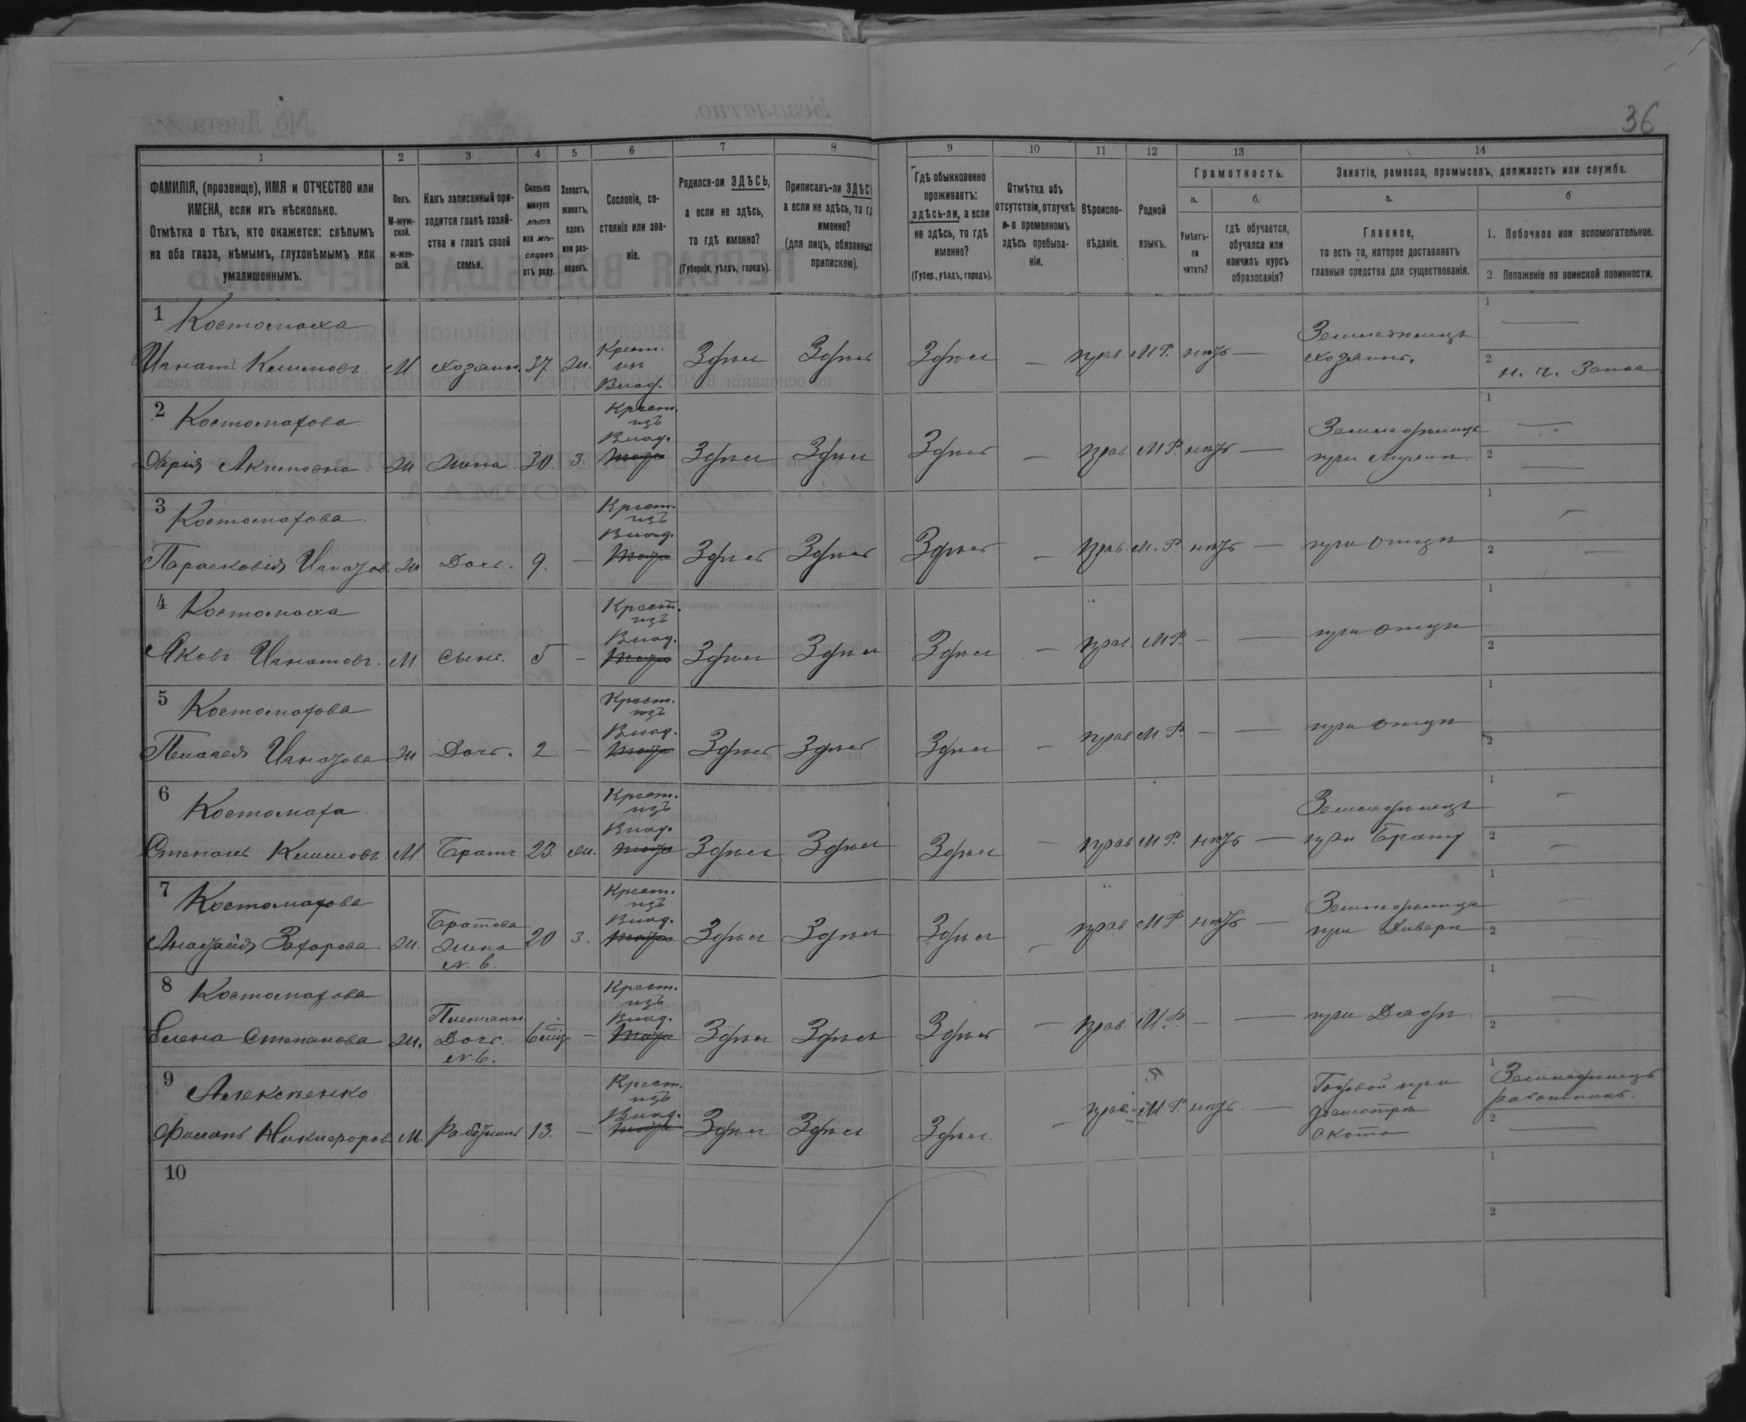 36
1 2 3 4 5 6 7 8 9 10 11 12 13 14
ФАМИЛІЯ, (прозвище), ИМЯ и ОТЧЕСТВО или ИМЕНА, если ихъ нѣсколько.
Отмѣтка о тѣхъ, кто окажется: слѣпымъ на оба глаза, нѣмымъ, глухонѣмымъ или умалишеннымъ.
Полъ. М-мужской. ж-женскій.
Какъ записанный приходится главѣ хозяйства и главѣ своей семьи.
Сколько минуло лѣтъ или мѣсяцевъ отъ роду.
Холостъ, женатъ, вдовъ или разведенъ.
Сословіе, состояніе или званіе.
Родился-ли ЗДѢСЬ, а если не здѣсь, то гдѣ именно?
(Губернія, уѣздъ, городъ).
Приписанъ-ли ЗДѢС а если не здѣсь, то гд именно?
(для лицъ, обязанных припискою).
Гдѣ обыкновенно проживаетъ: здѣсь-ли, а если не здѣсь, то гдѣ именно?
(Губер., уѣздъ, городъ).
Отмѣтка объ отсутствіи, отлучкѣ и о временномъ здѣсь пребываніи.
Вѣроисповѣданіе.
Родной языкъ.
Грамотность.
а. Умѣетъ-ли читать?
б. гдѣ обучается, обучался или кончилъ курсъ образованія?
Занятіе, ремесло, промыселъ, должность или служба.
а. Главное, то есть то, которое доставляетъ главныя средства для существованія.
б
1. Побочное или вспомогательное.
2 Положеніе по воинской повинности.
1 Костомаха
Игнат Климовъ М хозяинъ 37 ж. Крест. из Влад. Здѣсь Здѣсь Здѣсь — прав М Р. нѣтъ — Земледѣлецъ хозяинъ. 1 — 2
2 Костомахова
Дарія Акимовна ж жена 30 з. Крест. изъ Влад. Здѣсь Здѣсь Здѣсь — прав. М Р. нѣтъ — при мужѣ 1 — 2 —
3 Костомахова
Парасковія Игнатов. ж Дочь. 9. — Крест. изъ Влад. Здѣсь Здѣсь Здѣсь — прав. М. Р. нѣтъ — при отцѣ 1 — 2 —
4 Костомаха
Яковъ Игнатовъ. М сынъ. 5 — Крест. изъ Влад. Здѣсь Здѣсь Здѣсь — прав. М Р. — — при отцѣ 1 2
5 Костомахова
Пелагея Игнатова ж Дочь. 2 — Крест. изъ Влад. Здѣсь Здѣсь Здѣсь — прав М Р. — — при отцѣ 1 2
6 Костомаха
Степанъ Климовъ М Братъ 23 ж. Крест. изъ Влад. Здѣсь Здѣсь Здѣсь — прав М Р. нѣтъ — Земледѣлецъ при Брату 1 — 2 —
7 Костомахова
Захарова ж. Братова жена N. 6. 20 з. Крест. изъ Влад. Здѣсь Здѣсь Здѣсь — прав М Р. нѣтъ — при 1 2
8 Костомахова
Елена Степанова ж. Дочь N 6. 6 Крест. изъ Влад. Здѣсь Здѣсь Здѣсь — прав М. Р. — — при Дядѣ 1 — 2
9 Алексенко
Никифоров М. Работникъ 13. — Крест. изъ Влад. Здѣсь Здѣсь Здѣсь — прав. М Р. нѣтъ. — при скота 1 Земледѣлецъ работникъ. 2 —
10 1 2